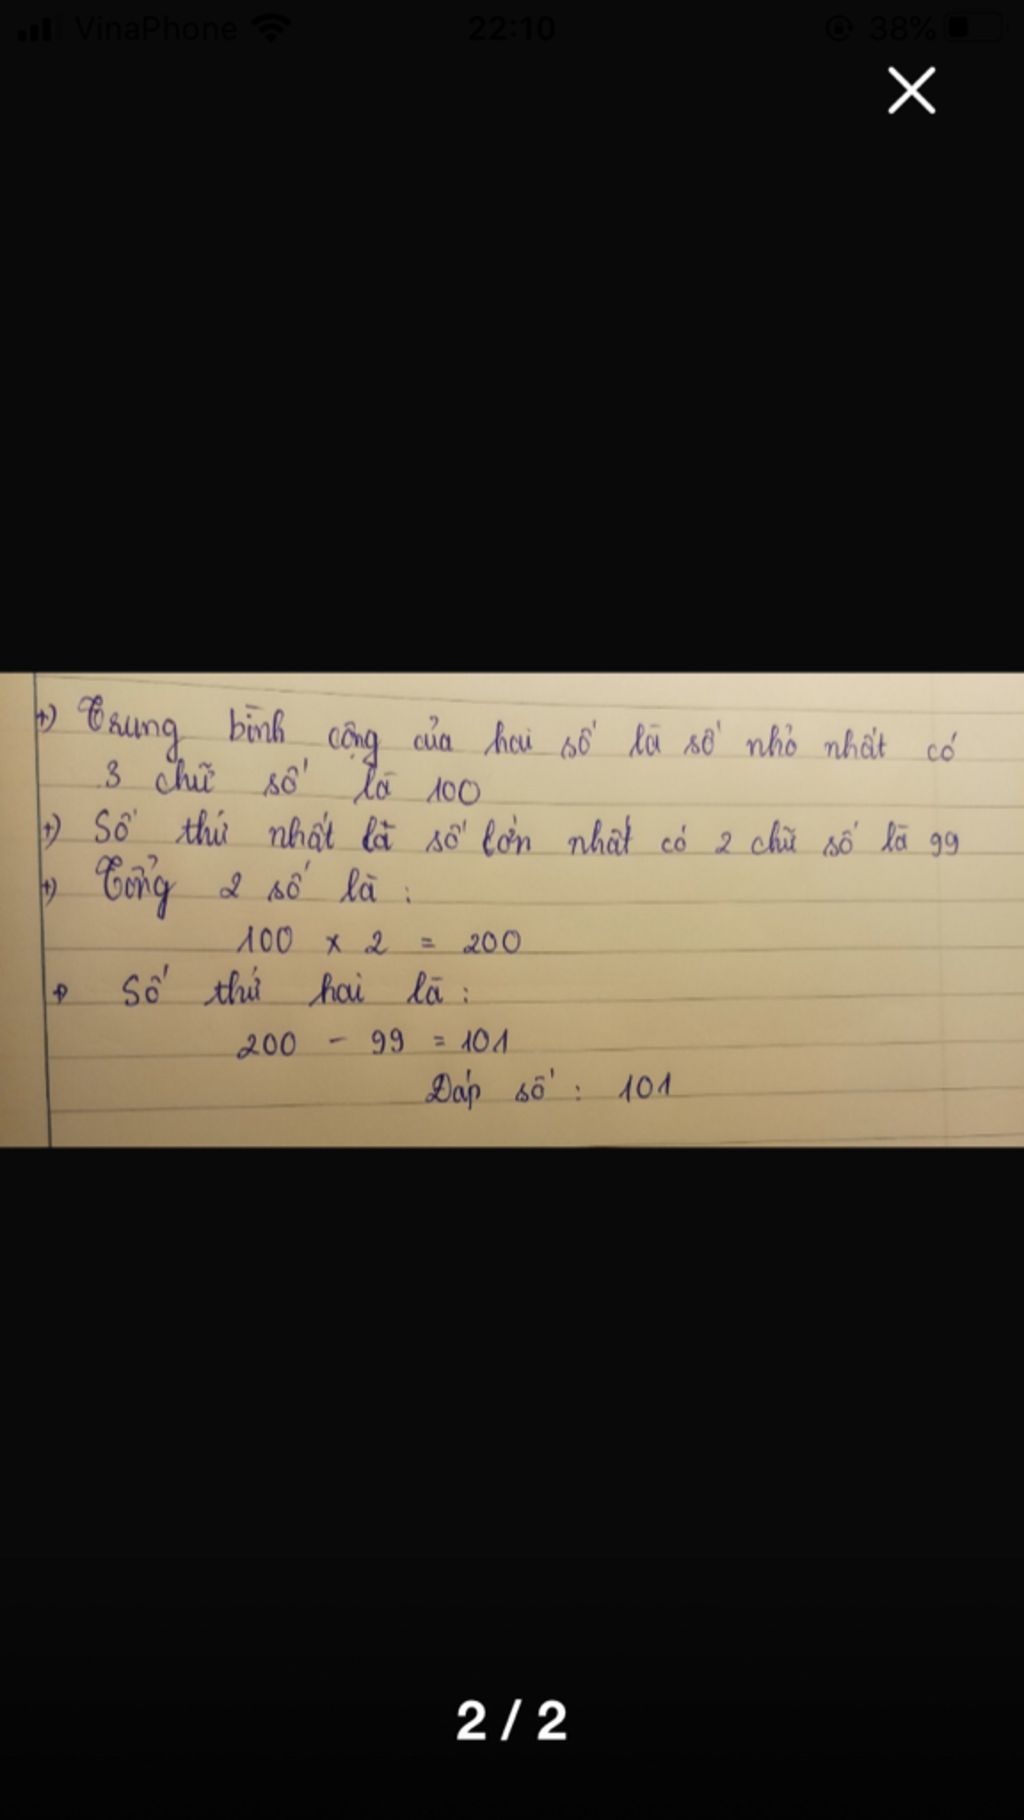 VinaPhone 22:10 38%
+) Trung bình cộng của hai số là số nhỏ nhất có
3 chữ số là 100
+) Số thứ nhất là số lớn nhất có 2 chữ số là 99
+) Tổng 2 số là :
100 x 2 = 200
+) Số thứ hai là :
200 - 99 = 101
Đáp số : 101
2 / 2